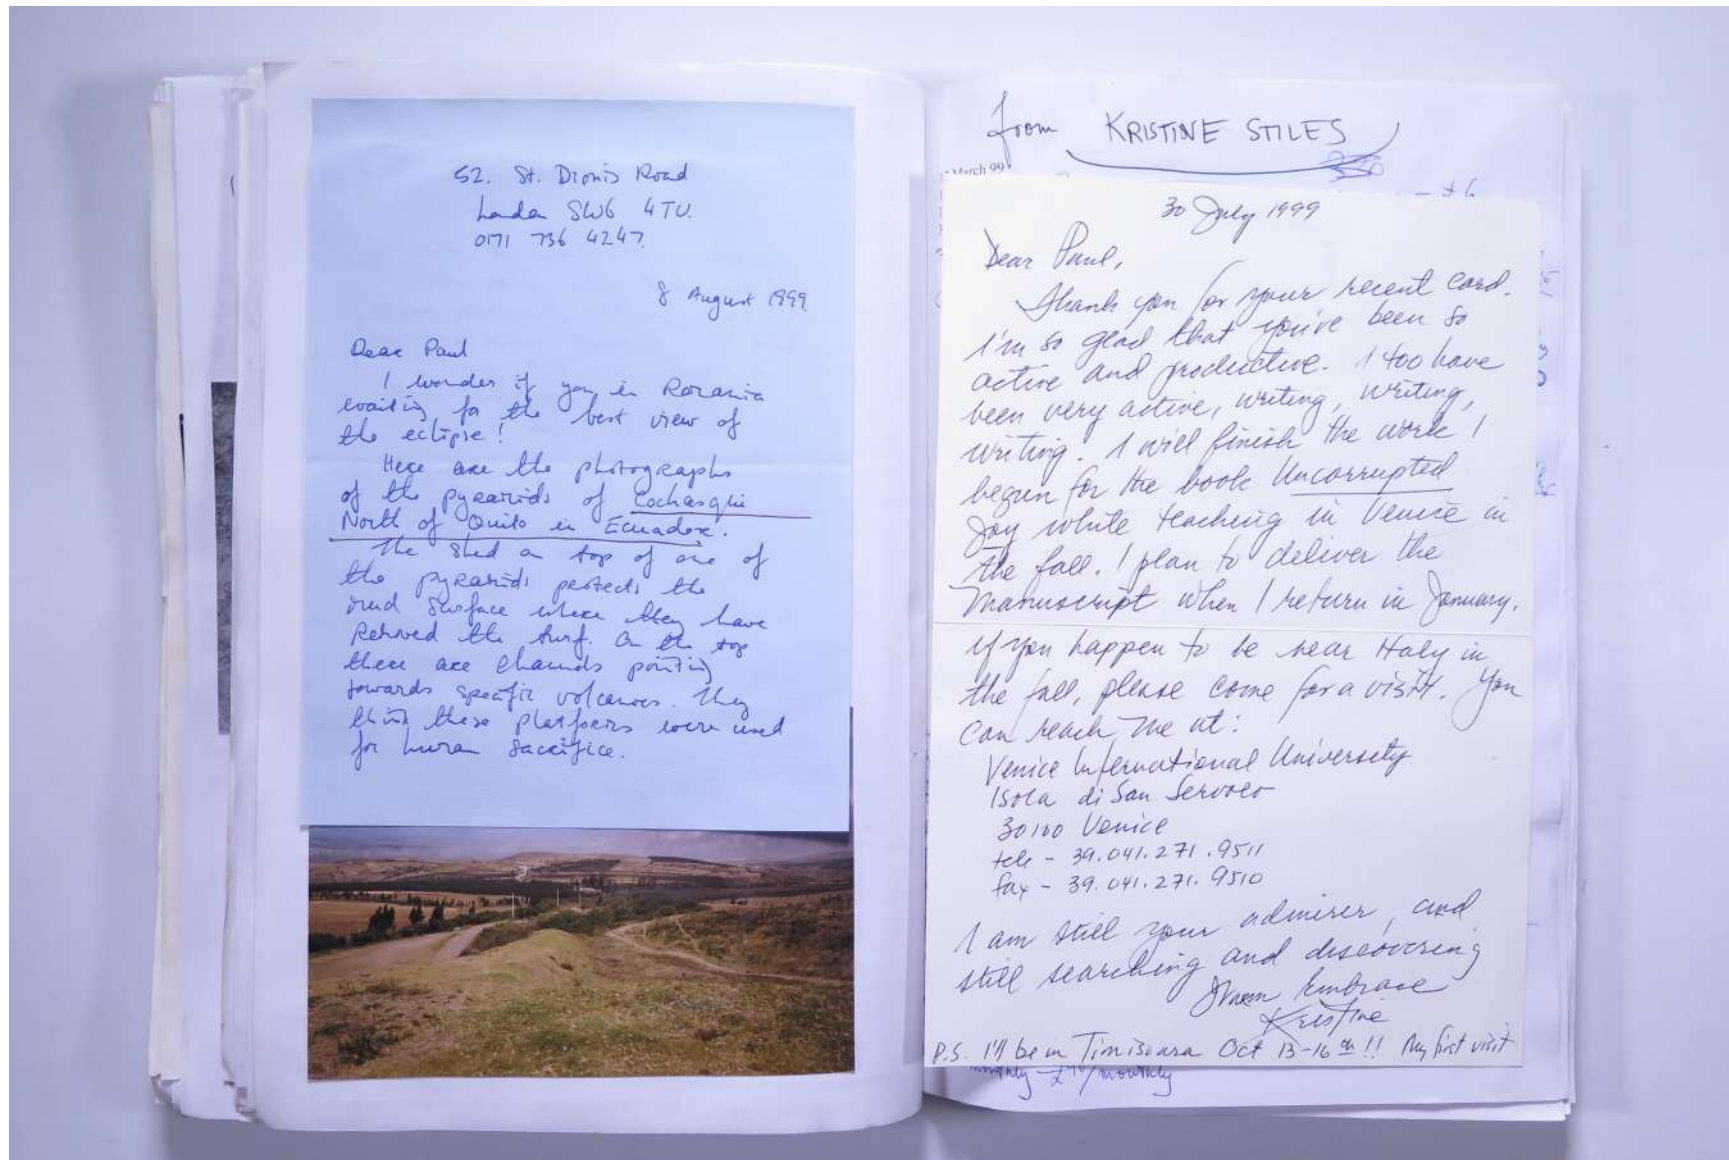 52. St. Dionis Road
London SW6 4TU.
0171 736 4247
8 August 1999
Dear Paul
I wonder if you in Romania
waiting for the best view of
the eclipse!
Here are the photographs
of the pyramids of Cochasqui
North of Quito in Ecuador.
The shed on top of one of
the pyramids protects the
mud surface where they have
removed the turf. On the top
there are channels pointing
towards specific volcanoes. They
think these platforms were used
for human sacrifice.
from KRISTINE STILES
March 99
30 July 1999
Dear Paul,
Thank you for your recent card.
I'm so glad that you've been so
active and productive. I too have
been very active, writing, writing,
writing. I will finish the work I
begun for the book Uncorrupted
Joy while teaching in Venice in
the fall. I plan to deliver the
manuscript when I return in January.
If you happen to be near Italy in
the fall, please come for a visit. You
can reach me at:
Venice International University
Isola di San Servolo
30100 Venice
tele - 39.041.271.9511
fax - 39.041.271.9510
I am still your admirer, and
still searching and discovering
Warm Embrace
Kristine
P.S. I'll be in Timisoara Oct 13-16th!! My first visit
monthly